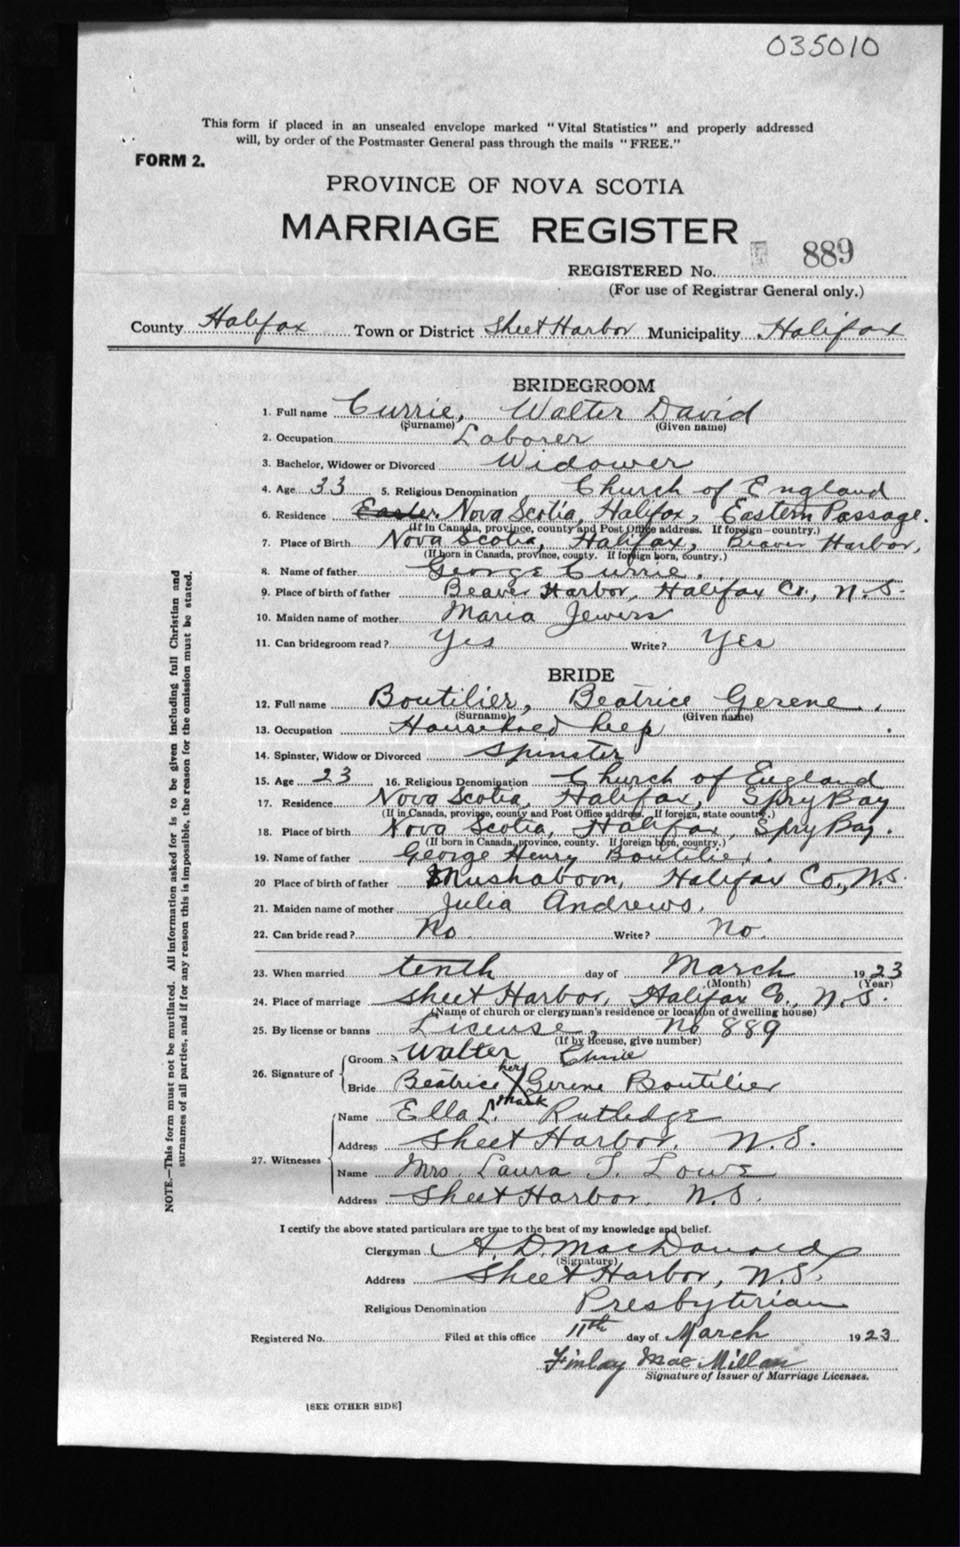 035010
This form if placed in an unsealed envelope marked "Vital Statistics" and properly addressed
will, by order of the Postmaster General pass through the mails "FREE."
FORM 2.
PROVINCE OF NOVA SCOTIA
MARRIAGE REGISTER
REGISTERED No. 889
(For use of Registrar General only.)
County Halifax Town or District Sheet Harbor Municipality Halifax
BRIDEGROOM
1. Full name Currie, Walter David
(Surname) (Given name)
2. Occupation Laborer
3. Bachelor, Widower or Divorced Widower
4. Age 33 5. Religious Denomination Church of England
6. Residence Easter Nova Scotia, Halifax, Eastern Passage.
(If in Canada, province, county and Post Office address. If foreign—country.)
7. Place of Birth Nova Scotia, Halifax, Beaver Harbor,
(If born in Canada, province, county. If foreign born, country.)
8. Name of father George Currie.
9. Place of birth of father Beaver Harbor, Halifax Co., N.S.
10. Maiden name of mother Maria Jewers
11. Can bridegroom read? Yes Write? Yes
BRIDE
12. Full name Boutilier, Beatrice Gerene.
(Surname) (Given name)
13. Occupation Household keep
14. Spinster, Widow or Divorced Spinster
15. Age 23 16. Religious Denomination Church of England
17. Residence Nova Scotia, Halifax, Spry Bay
(If in Canada, province, county and Post Office address. If foreign, state country.)
18. Place of birth Nova Scotia, Halifax, Spry Bay.
(If born in Canada, province, county. If foreign born, country.)
19. Name of father George Henry Boutilier.
20 Place of birth of father Mushaboon, Halifax Co., N.S.
21. Maiden name of mother Julia Andrews.
22. Can bride read? No Write? No.
23. When married tenth day of March 1923
(Month) (Year)
24. Place of marriage Sheet Harbor, Halifax Co., N.S.
(Name of church or clergyman's residence or location of dwelling house)
25. By license or banns License, No 889
(If by license, give number)
26. Signature of
Groom Walter Currie
her
Bride Beatrice X Gerene Boutilier
mark
27. Witnesses
Name Ella L. Rutledge
Address Sheet Harbor, N.S.
Name Mrs. Laura T. Lowe
Address Sheet Harbor, N.S.
I certify the above stated particulars are true to the best of my knowledge and belief.
Clergyman A. D. MacDonald
(Signature)
Address Sheet Harbor, N.S.
Religious Denomination Presbyterian
Registered No. Filed at this office 11th day of March 1923
Finlay MacMillan
Signature of Issuer of Marriage Licenses.
[SEE OTHER SIDE]
NOTE.—This form must not be mutilated. All information asked for is to be given including full Christian and
surnames of all parties, and if for any reason this is impossible, the reason for the omission must be stated.